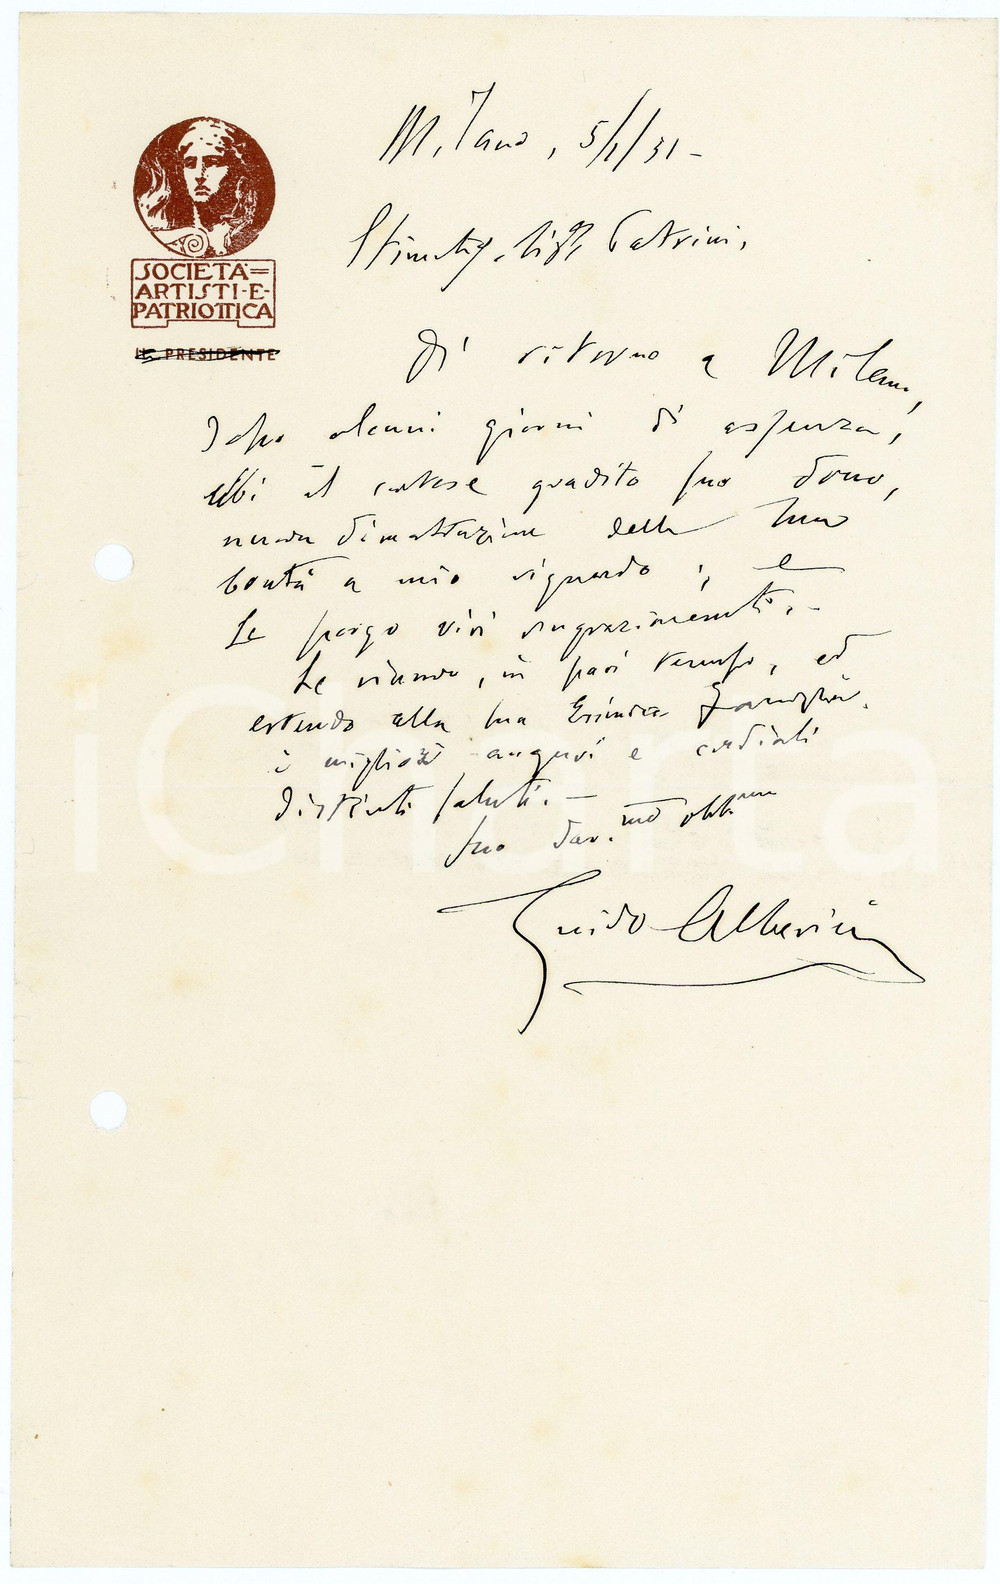 Milano, 5/1/31-
SOCIETÀ=
ARTISTI·E·
PATRIOTTICA
IL PRESIDENTE
Di ritorno a Milano,
dopo alcuni giorni di assenza,
ebbi il cortese gradito suo dono,
nuova dimostrazione della sua
bontà a mio riguardo; e
Le porgo vivi ringraziamenti.-
Le rinnovo, in pari tempo, ed
estendo alla sua Esimia Famiglia.
i migliori auguri e cordiali
distinti saluti.-
suo dev.mo obb.mo
Guido Alberini
iCharta